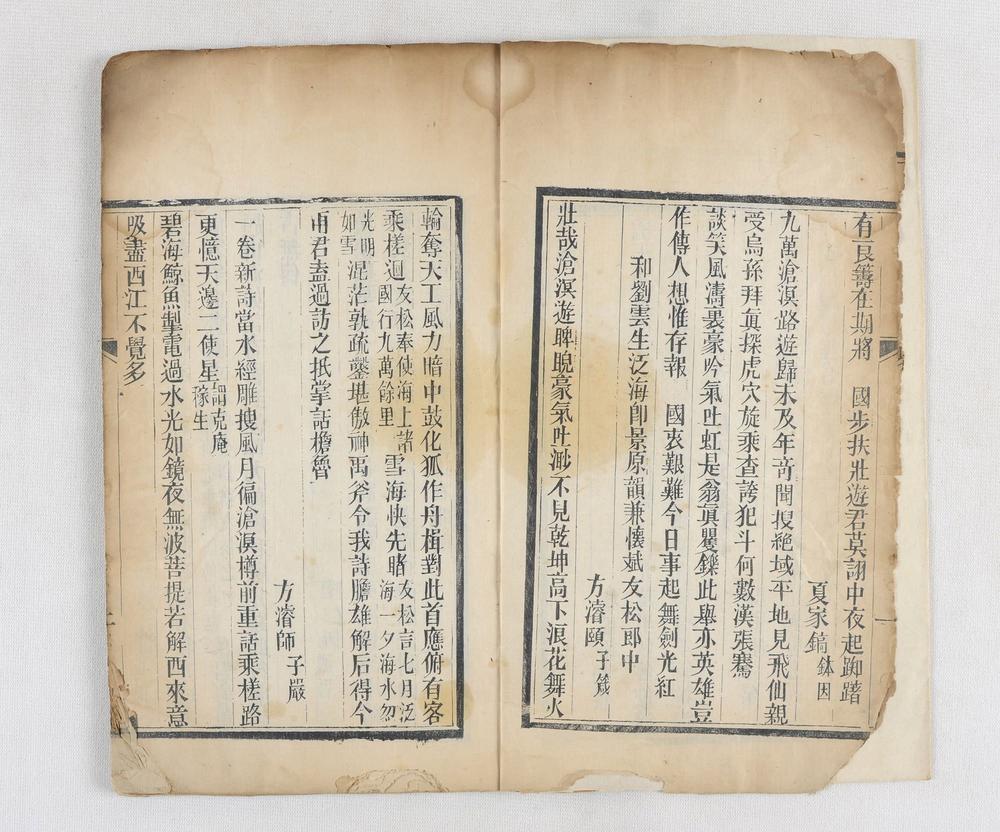 有良籌在期將　國步扶壯遊君莫詡中夜起踟躇
夏家鎬鉢因
九萬滄溟路遊歸未及年奇聞搜絕域平地見飛仙親
受烏孫拜眞探虎穴旋乘查誇犯斗何數漢張騫
談笑風濤裏豪吟氣吐虹是翁眞矍鑠此舉亦英雄豈
作傳人想惟存報　國衷艱難今日事起舞劍光紅
和劉雲生泛海卽景原韻兼懷斌友松郎中
方濬頤子箴
壯哉滄溟遊睥睨豪氣吐渺不見乾坤高下浪花舞火
輪奪天工風力暗中鼓化狐作舟楫對此首應俯有客
乘槎迴友松奉使海上諸國行九萬餘里雪海快先睹友松言七月泛海一夕海水忽
光明如雪混茫孰疏鑿堪傲神禹斧令我詩膽雄解后得今
雨君盍過訪之抵掌話檐魯
方濬師子嚴
一卷新詩當水經雕搜風月徧滄溟樽前重話乘槎路
更憶天邊二使星謂克庵稼生
碧海鯨魚掣電過水光如鏡夜無波菩提若解西來意
吸盡西江不覺多